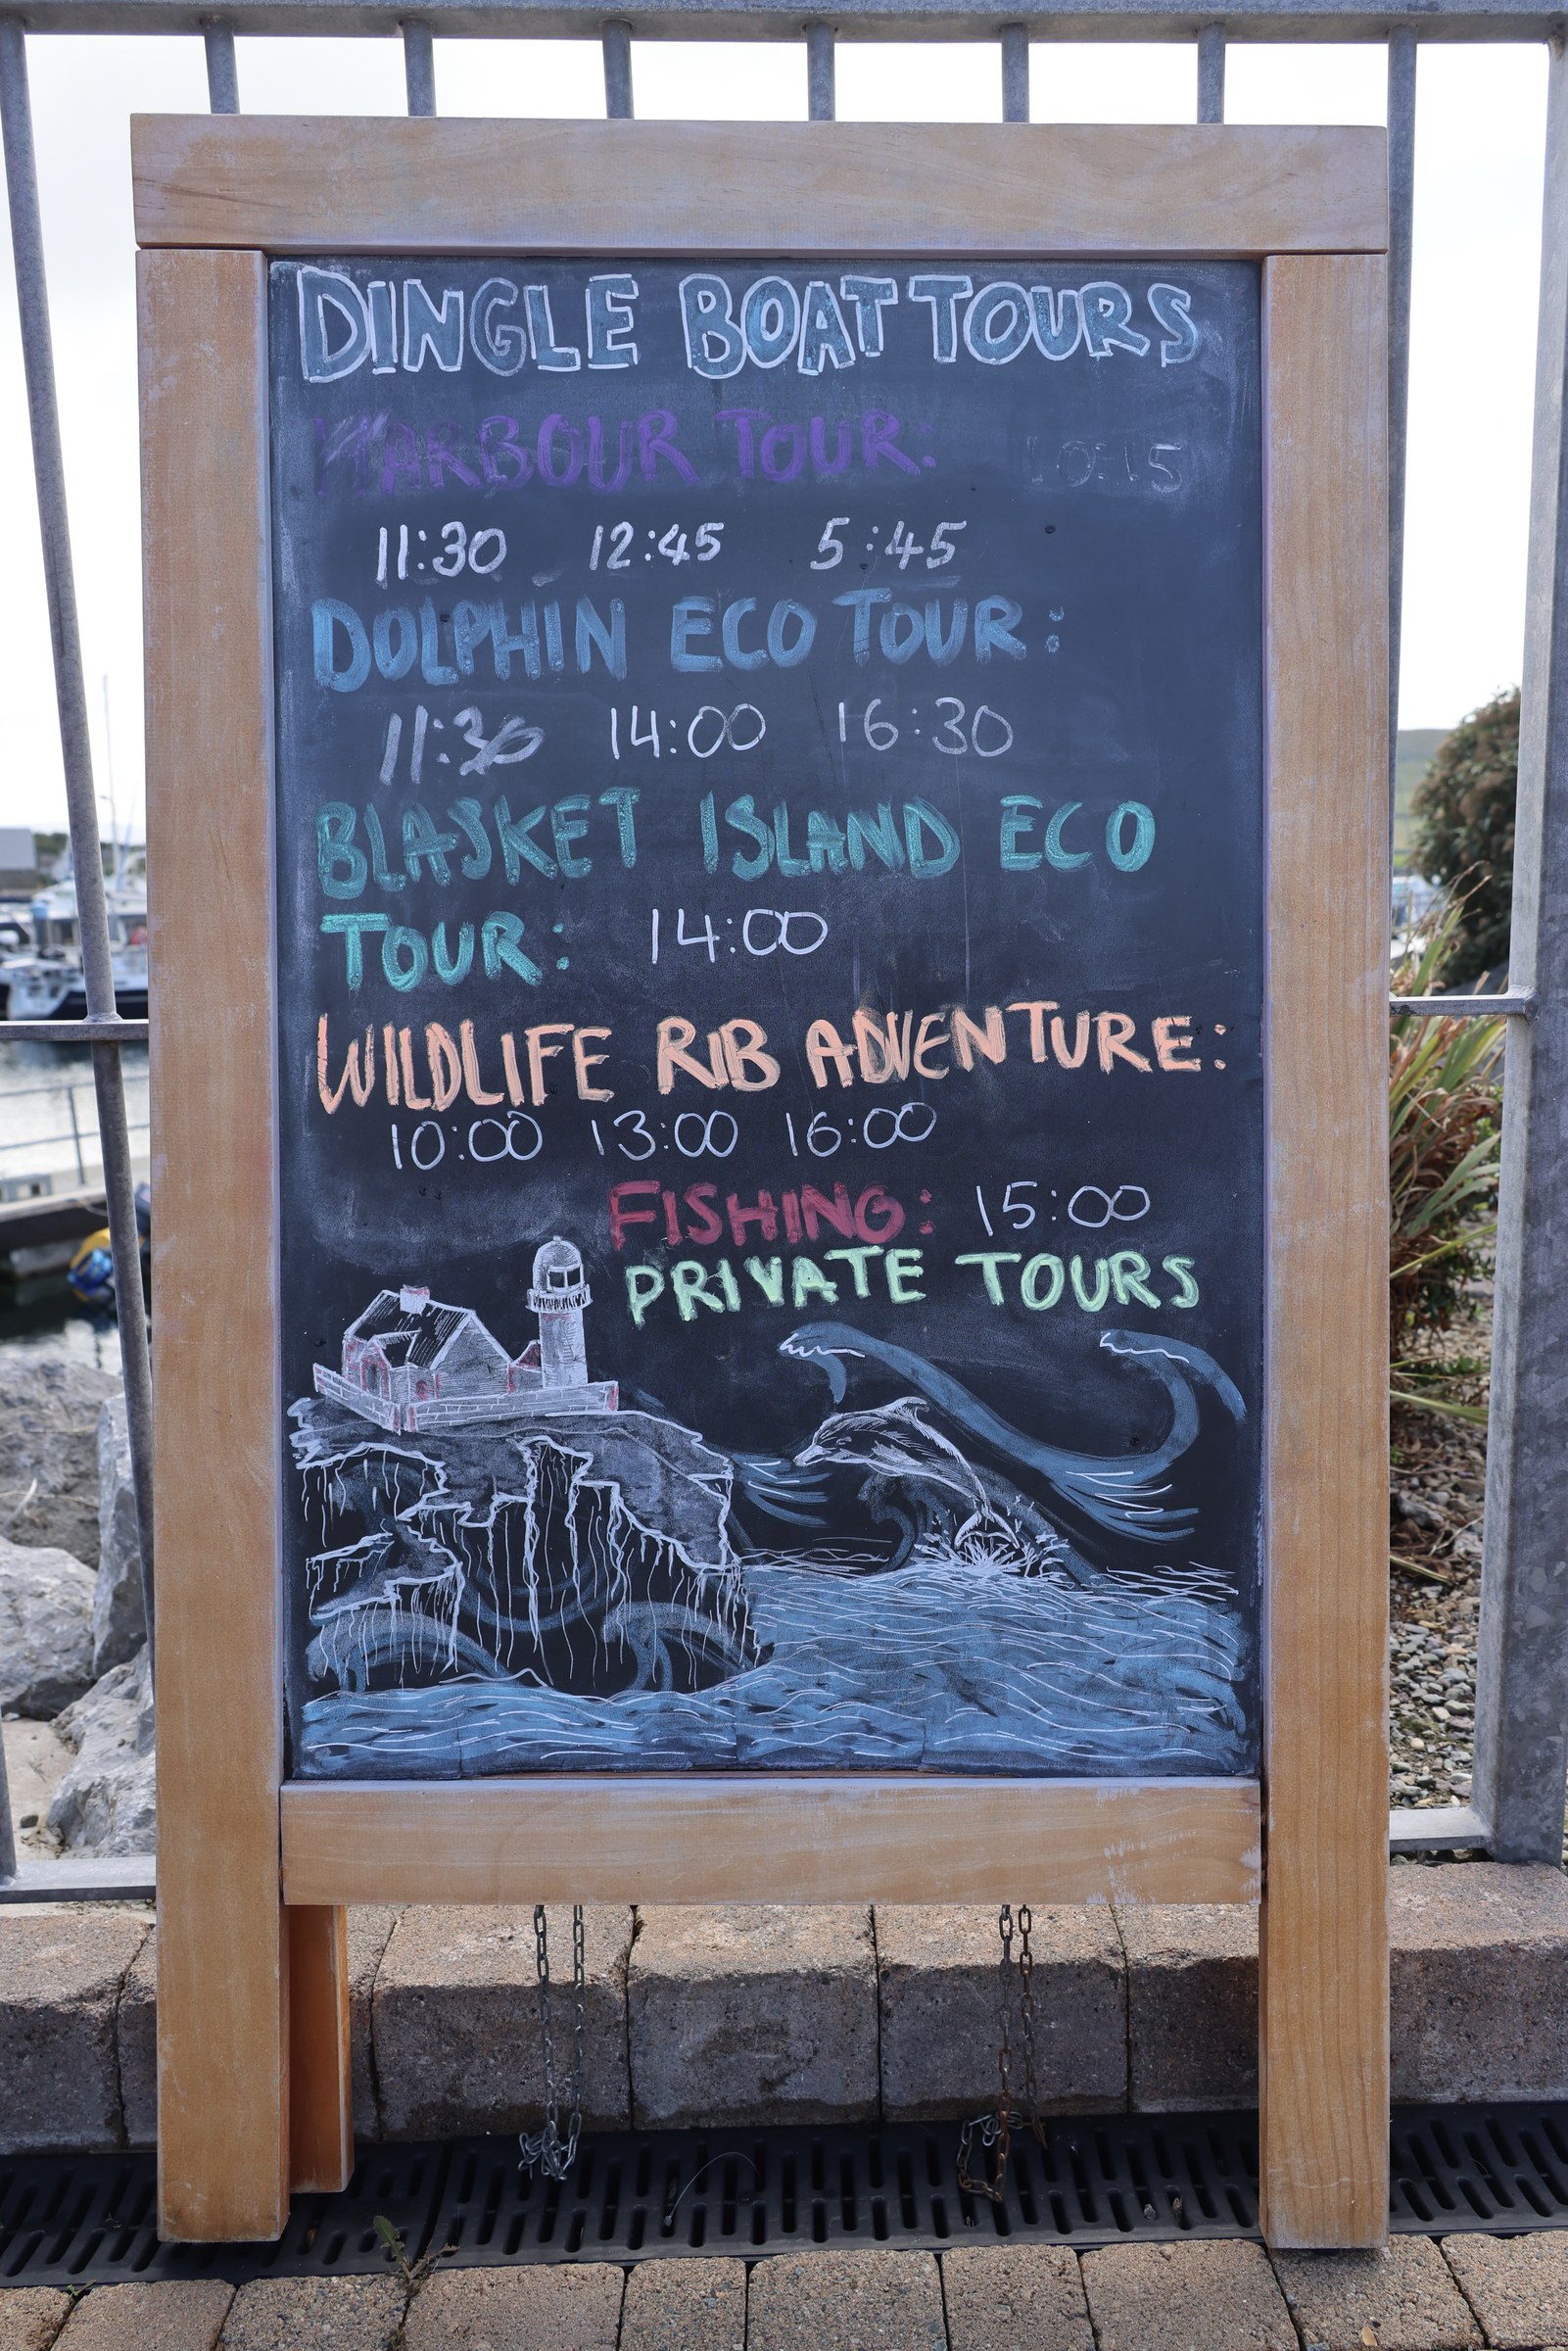 DINGLE BOAT TOURS
HARBOUR TOUR: 10:15
11:30 12:45 5:45
DOLPHIN ECO TOUR:
11:30 14:00 16:30
BLASKET ISLAND ECO
TOUR: 14:00
WILDLIFE RIB ADVENTURE:
10:00 13:00 16:00
FISHING: 15:00
PRIVATE TOURS